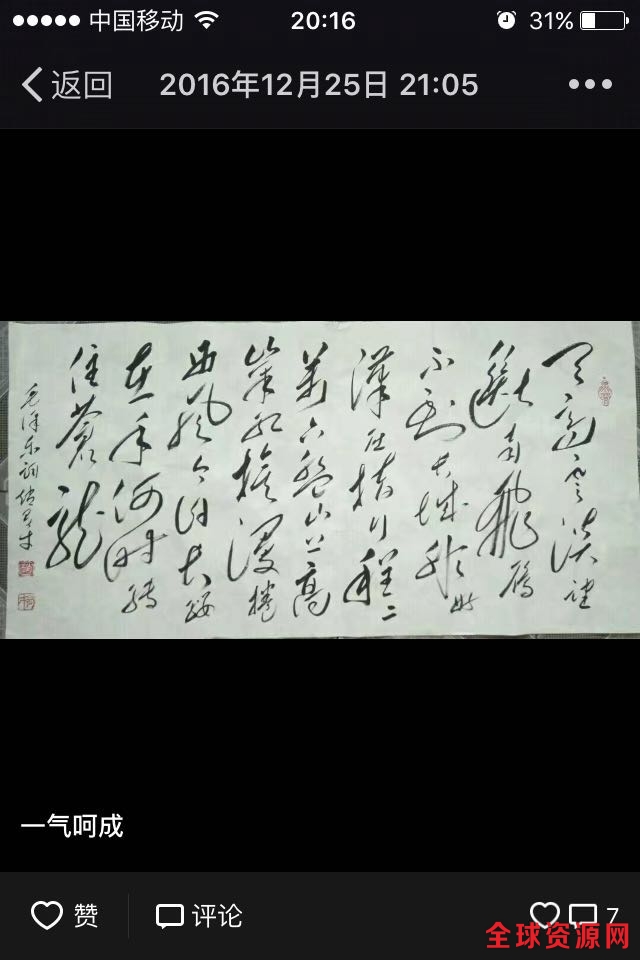 中国移动 20:16 31%
返回 2016年12月25日 21:05
天高云淡望
断南飞雁
不到长城非好
漢屈指行程二
萬六盘山上高
峯红旗漫捲
西风今日长缨
在手何时缚
住苍龙
毛泽东词
一气呵成
赞 评论 7
全球资源网